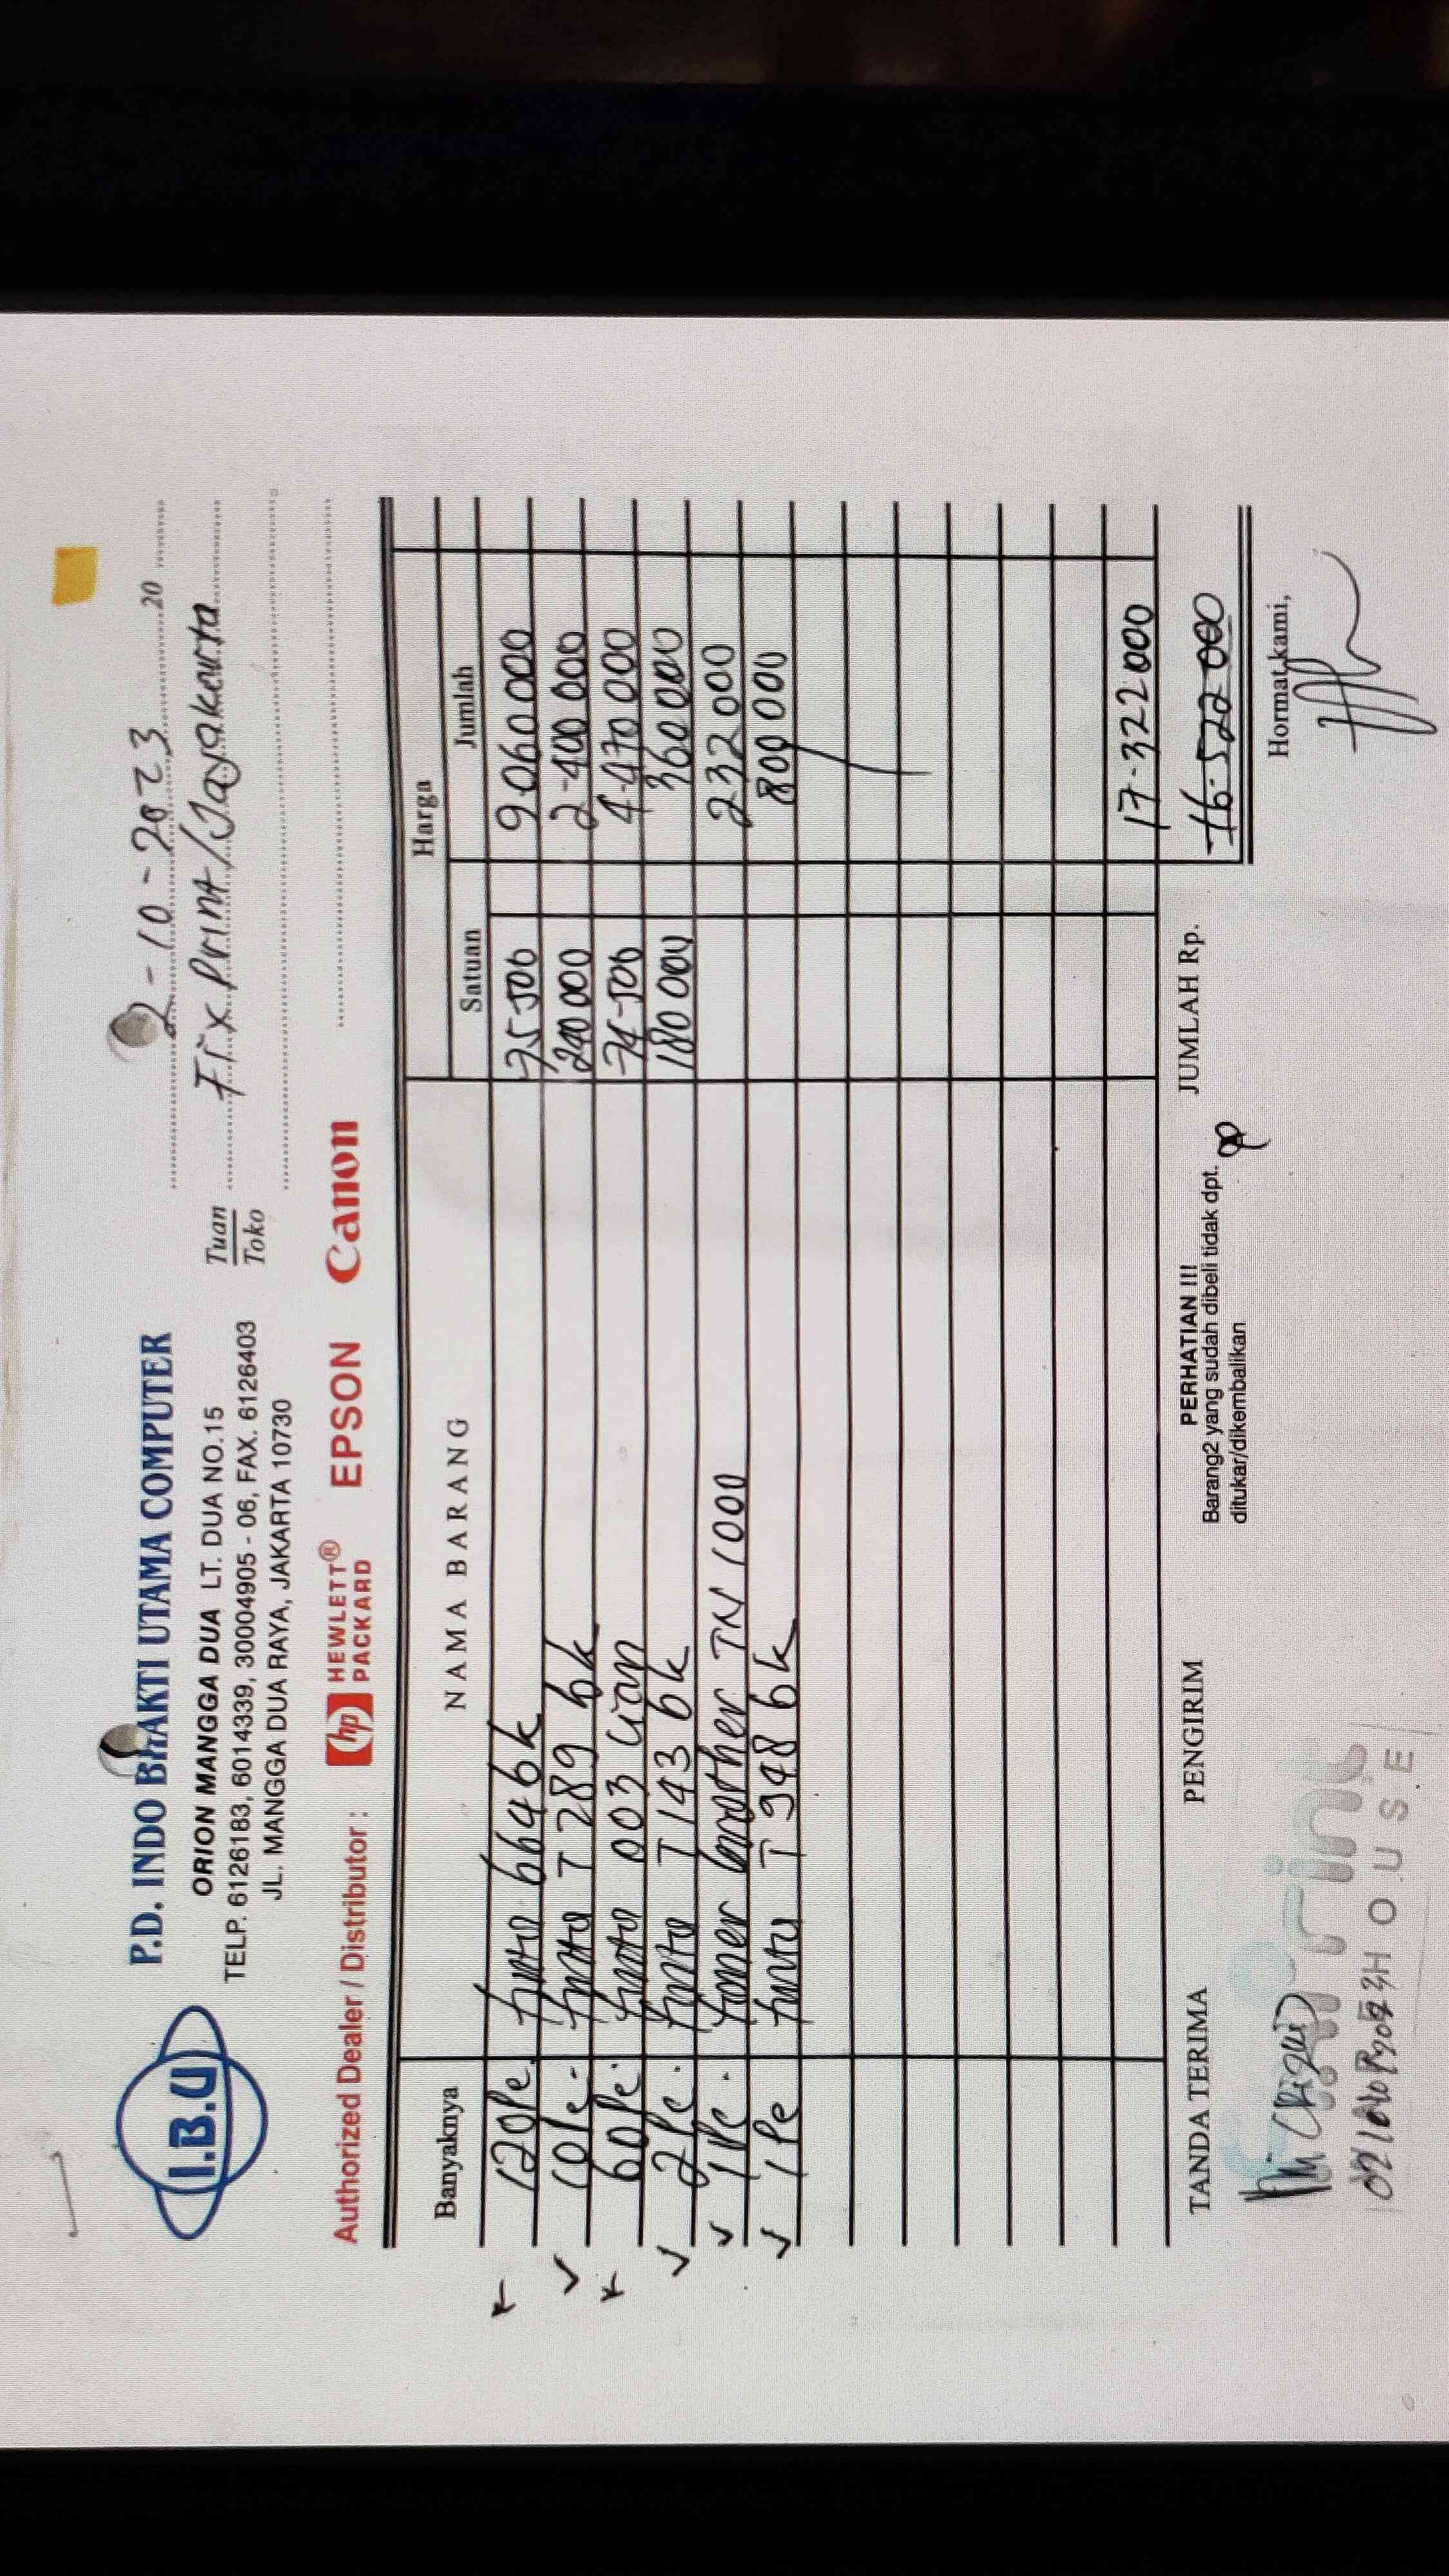 I.B.U
P.D. INDO BHAKTI UTAMA COMPUTER
ORION MANGGA DUA LT. DUA NO.15
TELP. 6126183, 6014339, 30004905 - 06, FAX. 6126403
JL. MANGGA DUA RAYA, JAKARTA 10730
2-10-2023 20
Tuan Fix Print/Jayakarta
Toko
Authorized Dealer / Distributor : hp HEWLETT® PACKARD EPSON Canon
Banyaknya NAMA BARANG Harga
Satuan Jumlah
120 Pc tinta 664 bk 75 500 9060 000
10 Pc - tinta T 289 bk 240 000 2-400 000
60 Pc. tinta 003 74-500 4-470 000
2 Pc. tinta T 143 bk 180 000 360 000
1 Pc. toner brother TN 1000 232 000
1 Pc tinta T 948 bk 800 000
17-322 000
TANDA TERIMA PENGIRIM PERHATIAN !!! JUMLAH Rp. 16-522 000
Barang2 yang sudah dibeli tidak dpt.
ditukar/dikembalikan
Hormat kami,
Print
HOUSE